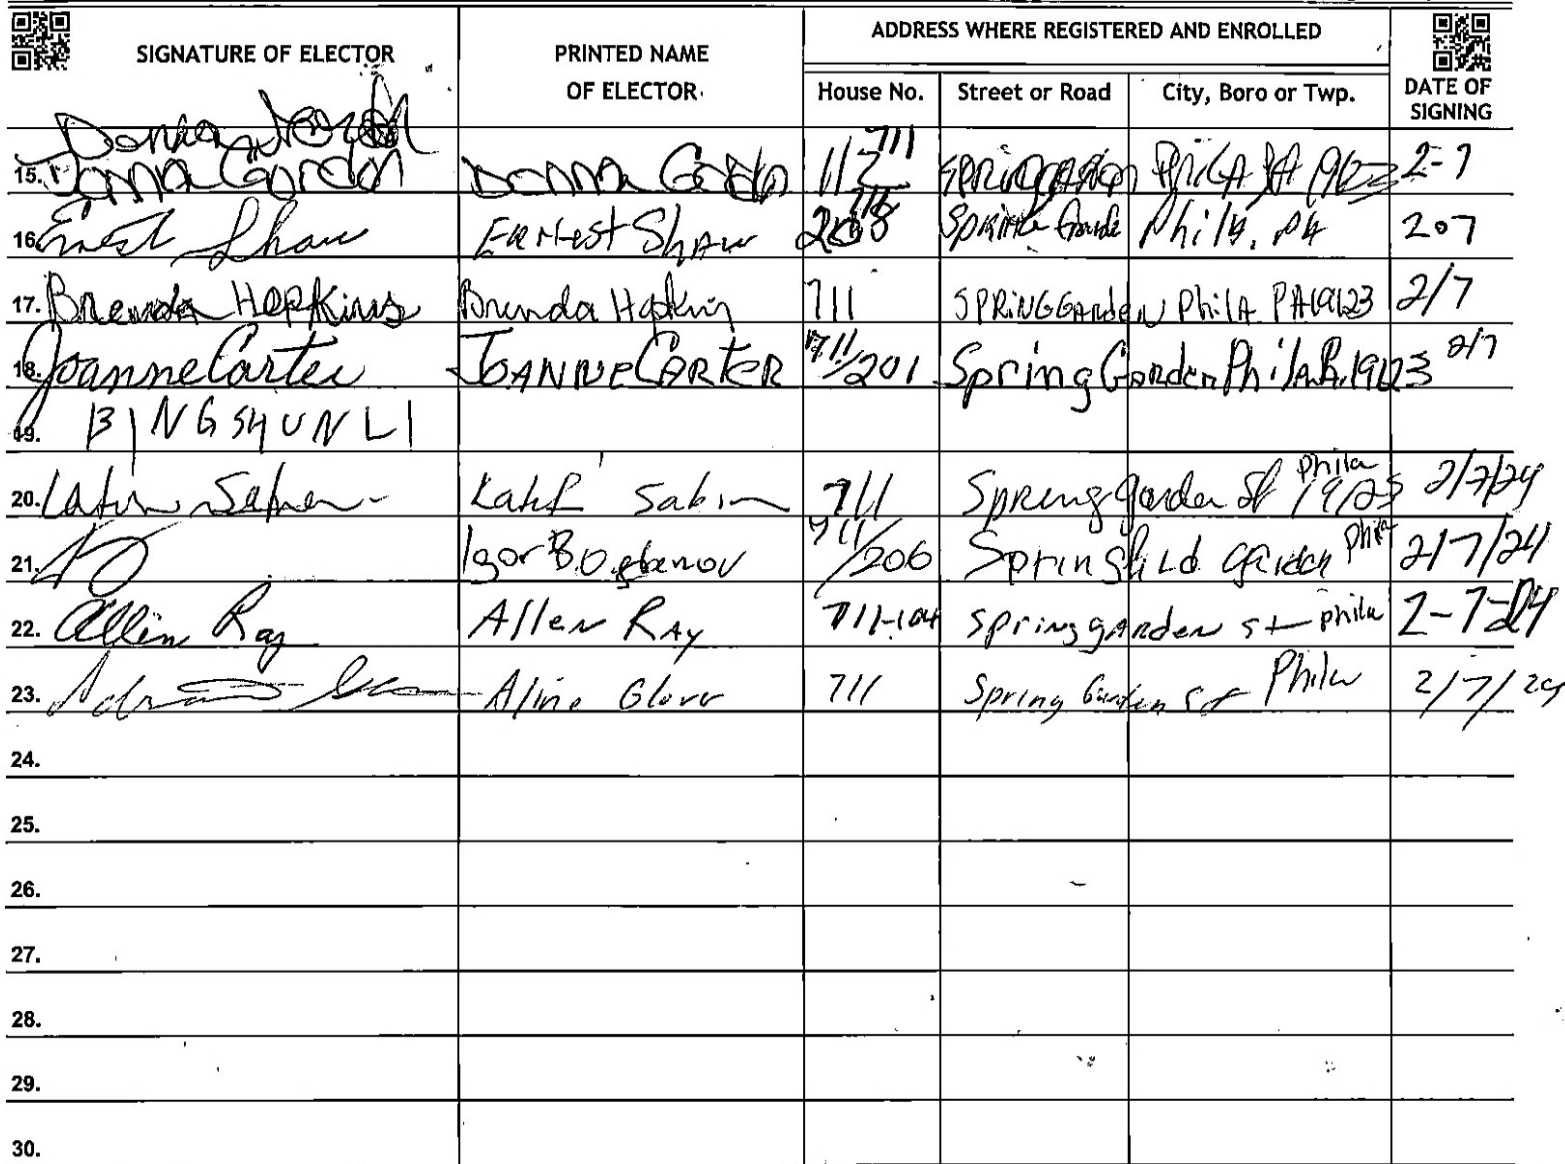 SIGNATURE OF ELECTOR PRINTED NAME OF ELECTOR ADDRESS WHERE REGISTERED AND ENROLLED DATE OF SIGNING
House No. Street or Road City, Boro or Twp.
Donna
15. Donna Gordon Donna 112 711 Phila PA 2-7
16. Ernest Shaw Earnest Shaw Spring Phila. PA 207
17. Brenda Hopkins Brenda Hopkins 711 SPRING GARden Phila PA 19123 2/7
18. Joanne Carter JOANNE CARTER 711/201 Spring Garden Phila Pa. 19123 2/7
19. BINGSHUN LI
20. 711 Spring garden St Phila 19123 2/7/24
21. Igor 711/206 Springfild garden Phila 2/7/24
22. Allen Ray Allen RAy 711-104 Spring gARden st phila 2-7-24
23. Aline Glover 711 Spring Garden St Phila 2/7/24
24.
25.
26.
27.
28.
29.
30.